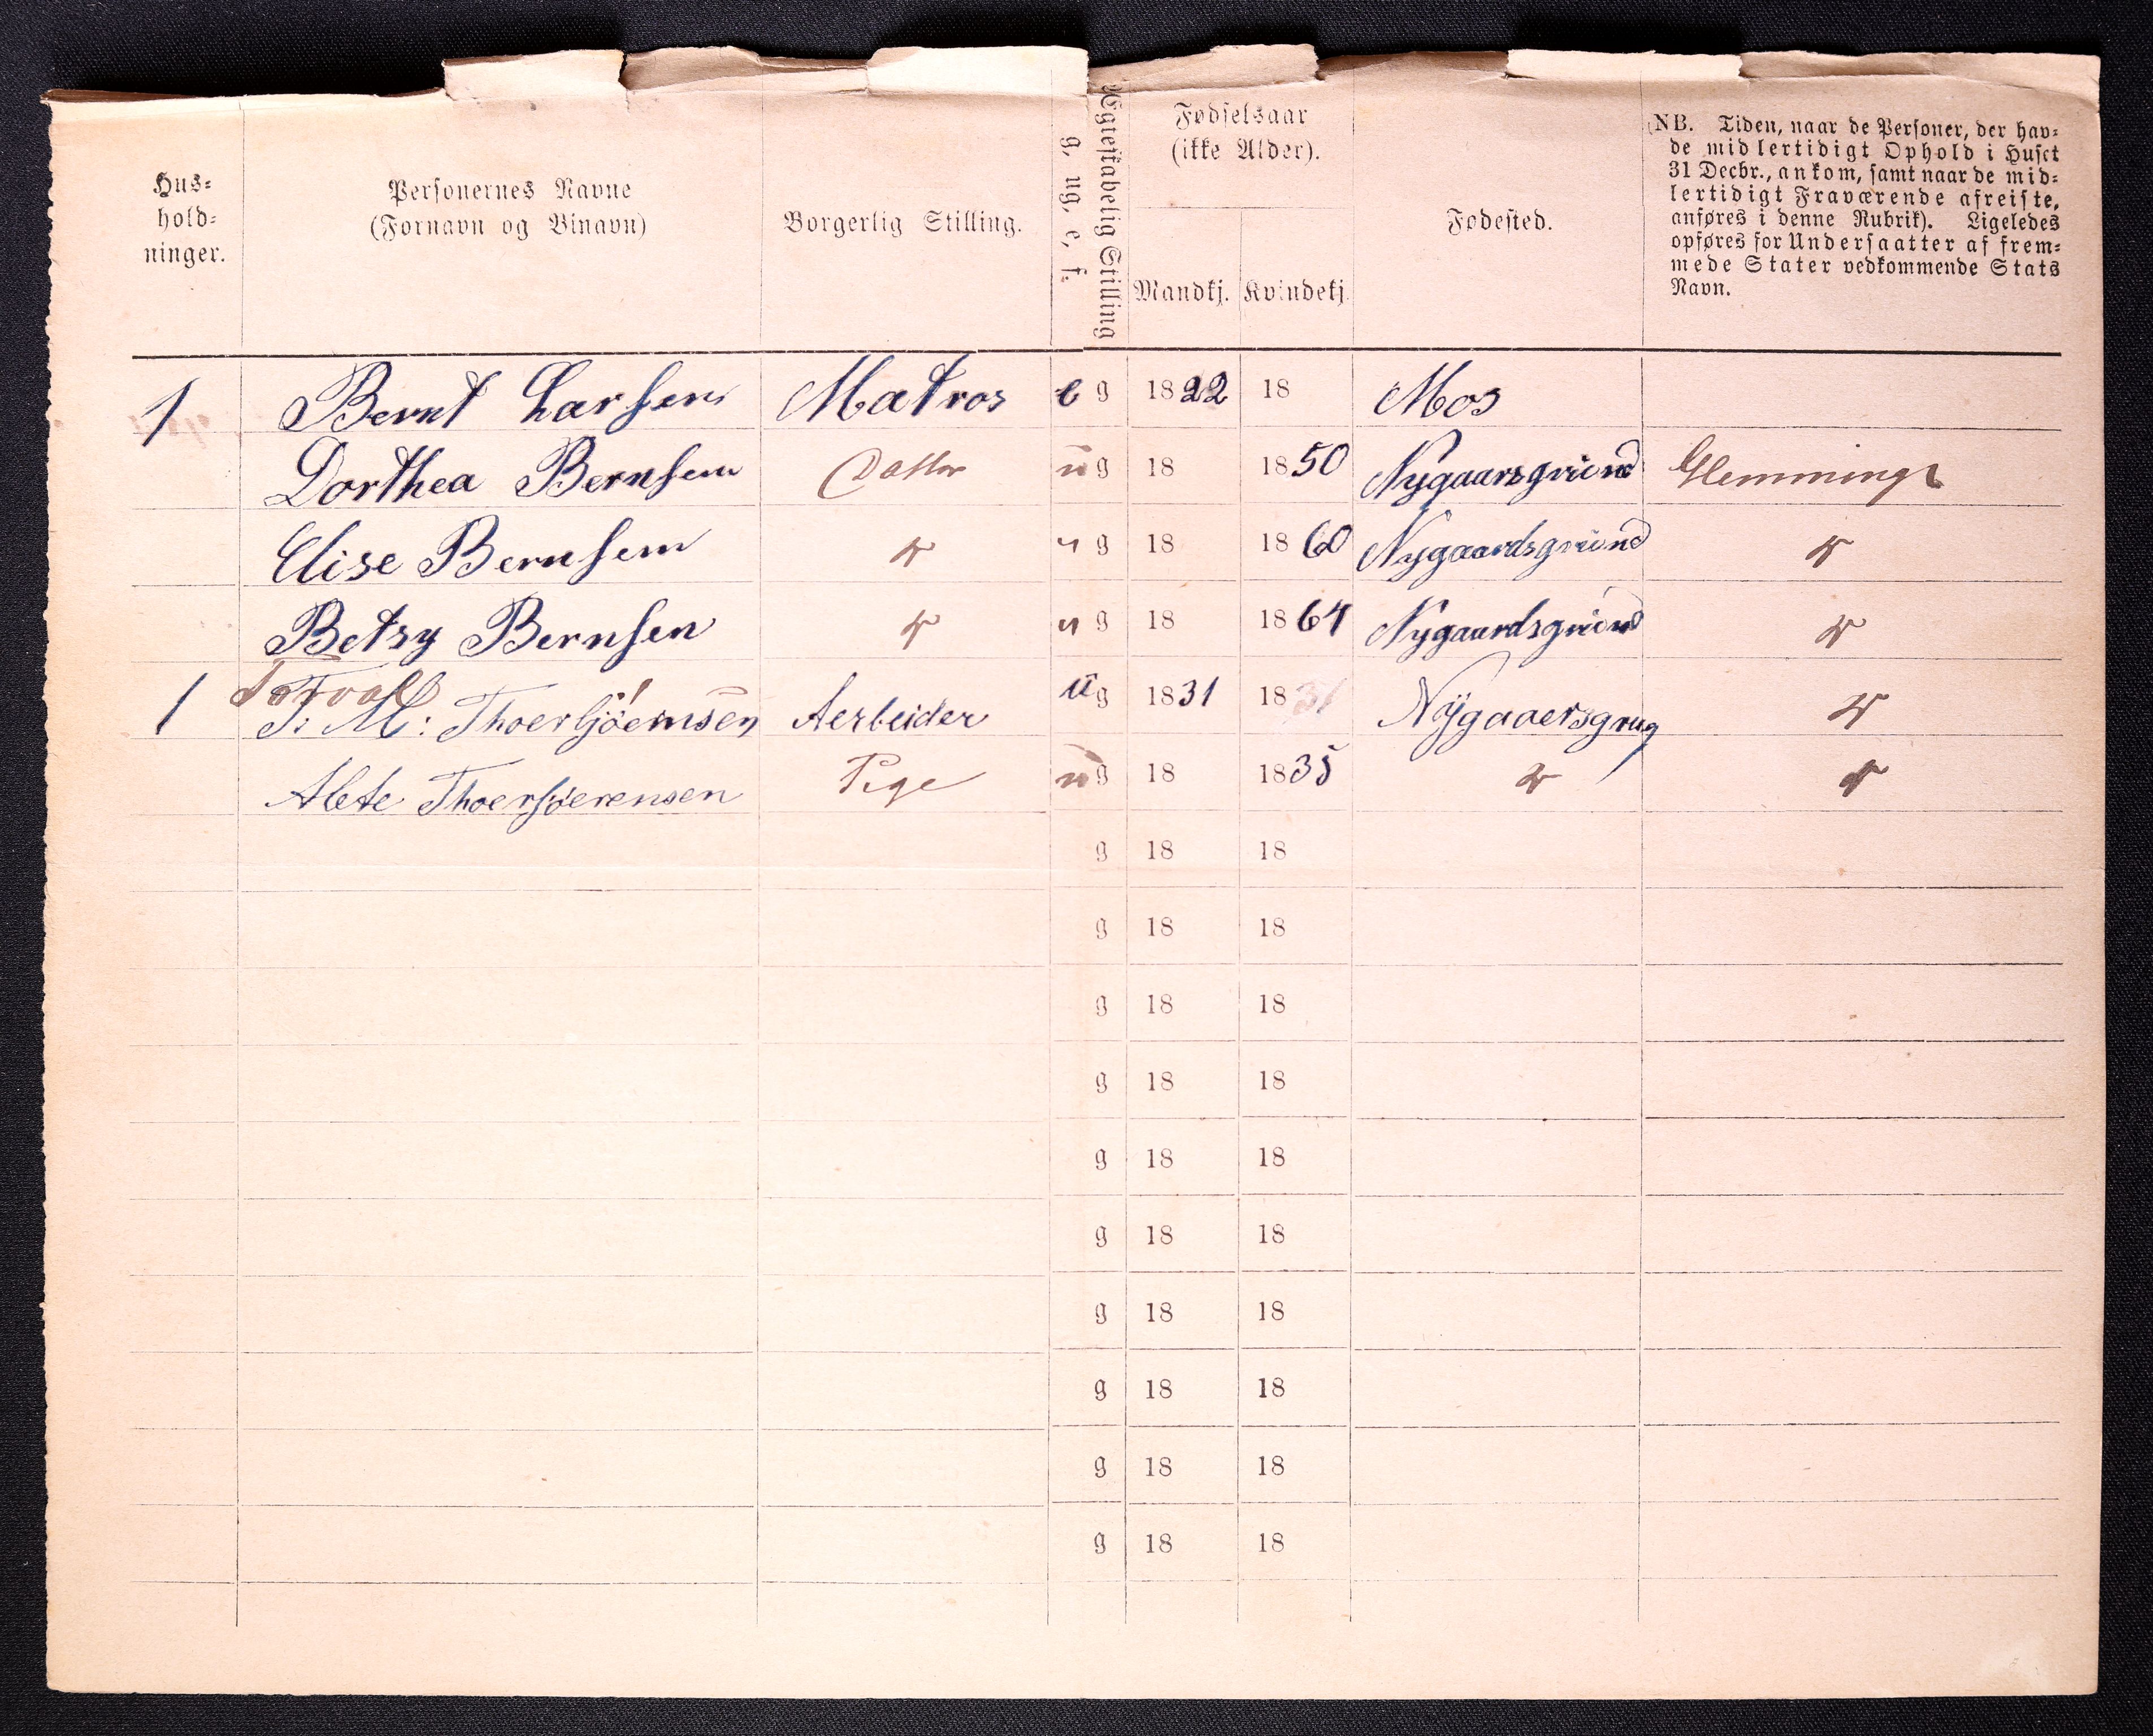 Hus-
hold-
ninger.
Personernes Navne
(Fornavn og Binavn)
Borgerlig Stilling.
Ægteskabelig Stilling
g, ug, e, f.
Fødselsaar
(ikke Alder).
Mandkj. Kvindekj.
Fødested.
(NB. Tiden, naar de Personer, der hav-
de midlertidigt Ophold i Huset
31 Decbr., ankom, samt naar de mid-
lertidigt Fraværende afreiste,
anføres i denne Rubrik). Ligeledes
opføres for Undersaatter af frem-
mede Stater vedkommende Stats
Navn.
1 Bernt Larsen Matros e g 1822 18 Mos
Dorthea Bernsen Datter u g 18 1850 Nygaarsgrund Glemminge
Elise Bernsen u g 18 1860 Nygaardsgrund
Betsy Bernsen u g 18 1864 Nygaardsgrund
Torval
1 T: M: Aerbeider u g 1831 1831 Nÿgaaersgrug
Pige u g 18 1835
g 18 18
g 18 18
g 18 18
g 18 18
g 18 18
g 18 18
g 18 18
g 18 18
g 18 18
g 18 18